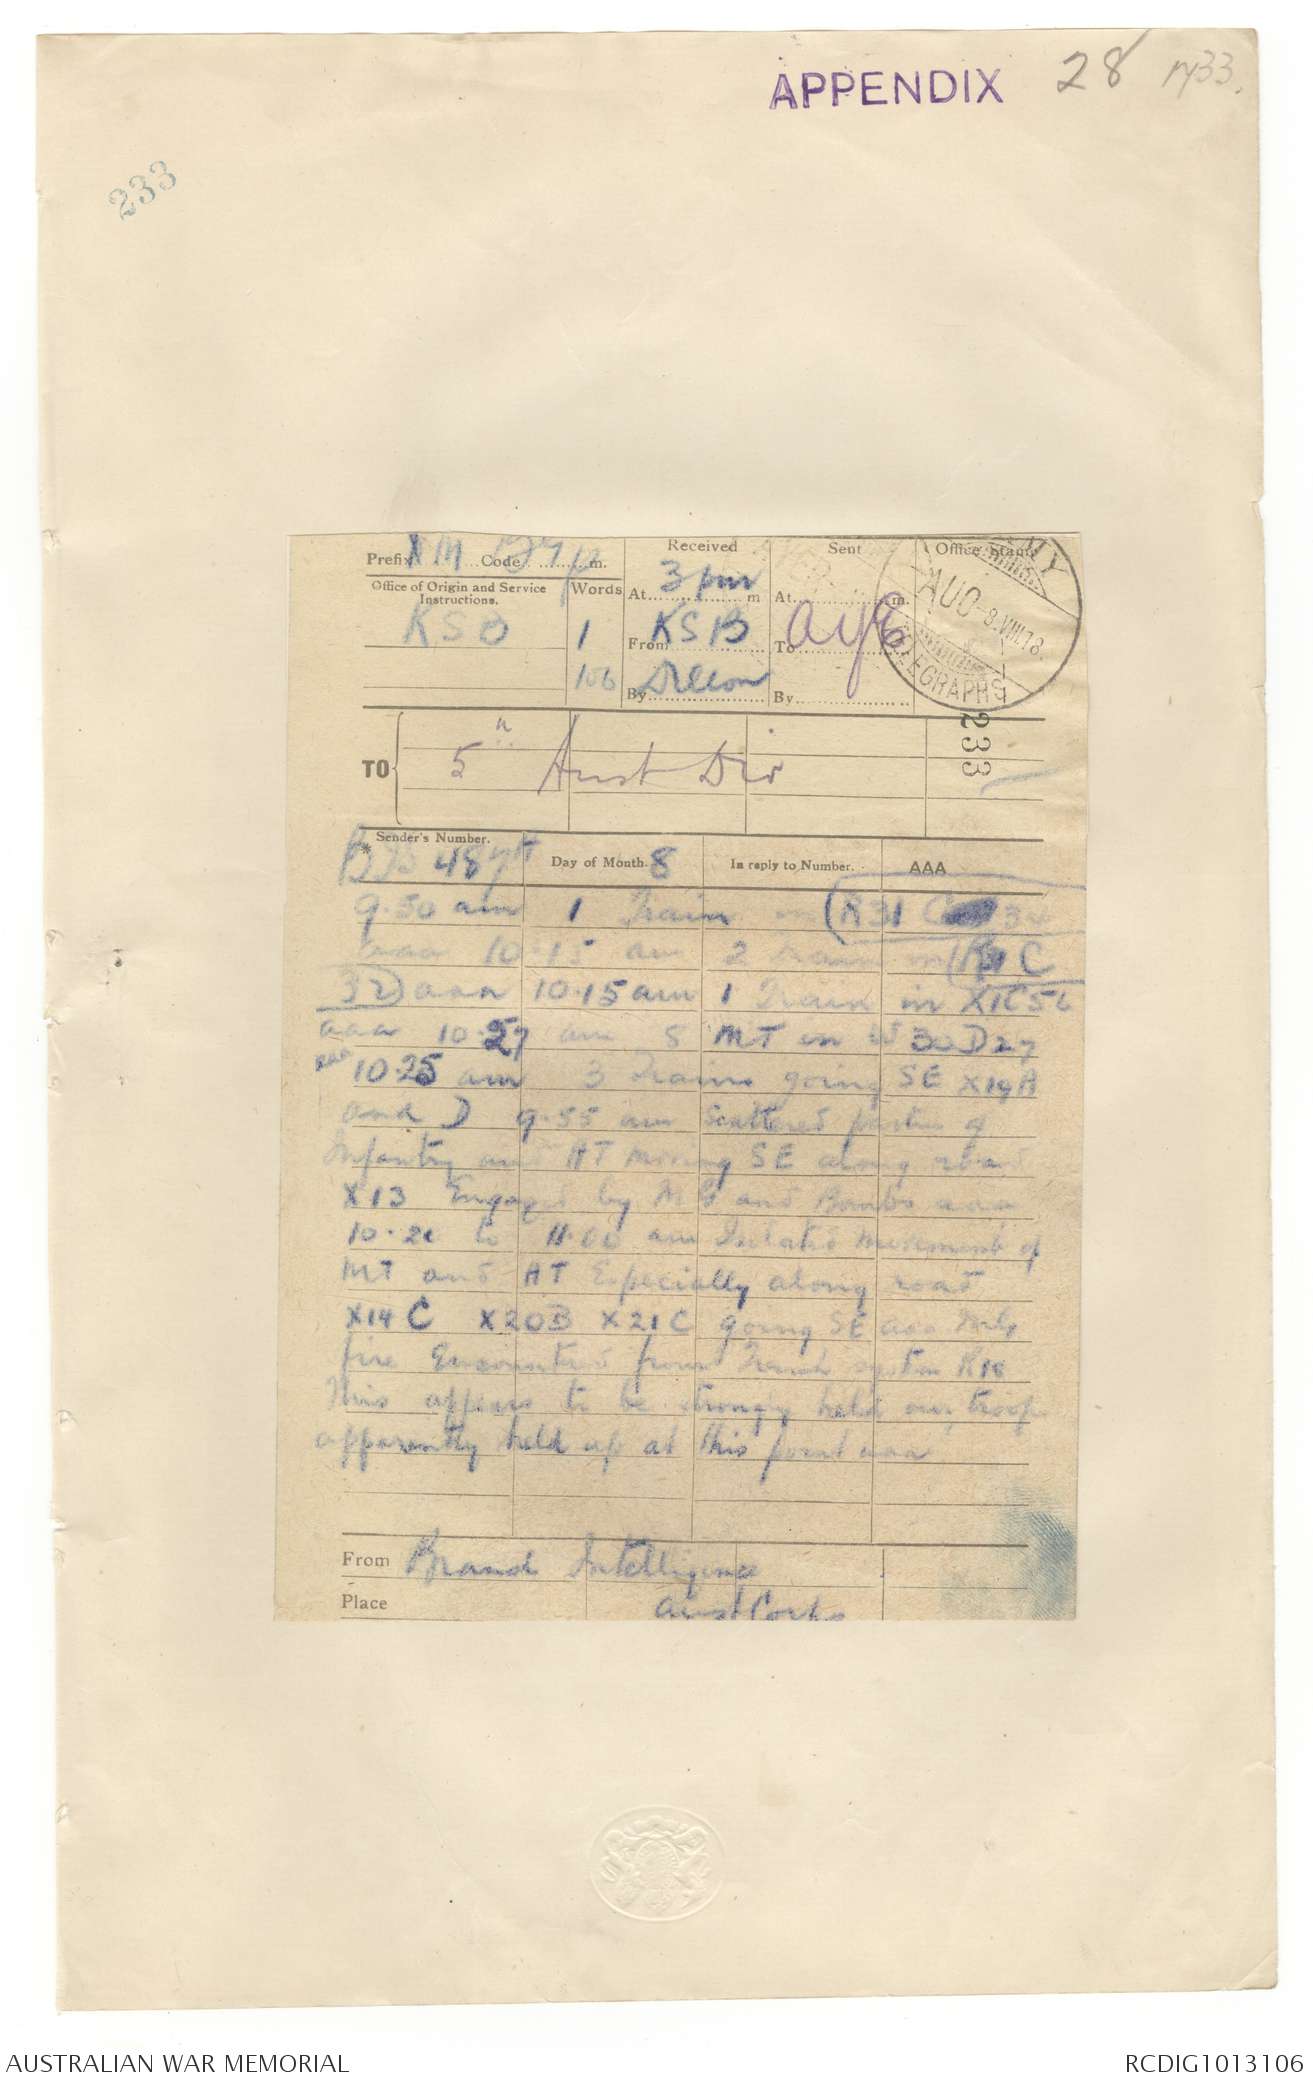 APPENDIX 28
233
Prefix XM Code m.
Received
Sent
Office Stamp
Office of Origin and Service Instructions.
Words
At 3 pm m
At m.
KSO
1
From KSB
To AYE
106
By Dillon
By
ARMY TELEGRAPHS
AUO
8.VIII.18.
TO
5th Aust Div
233
* Sender's Number.
487
Day of Month 8
In reply to Number.
AAA
9.50 am 1 Train in (R31 C 34
aaa 10.15 am 2 train in (R31 C
32) aaa 10.15 am 1 Train in X1C56
aaa 10.27 am 5 MT on W 30D27
aaa 10.25 am 3 Trains going SE X14A
and D 9.55 am Scattered parties of
Infantry and HT moving SE along road
X13 Engaged by MG and Bombs aaa
10.20 to 11.00 am Isolated movement of
MT and HT Especially along road
X14C X20B X21C going SE aaa MG
fire Encountered from Trench system R18
This appears to be strongly held our troops
apparently held up at this point aaa
From Brand Intelligence
Place Aust Corps
AUSTRALIAN WAR MEMORIAL
RCDIG1013106